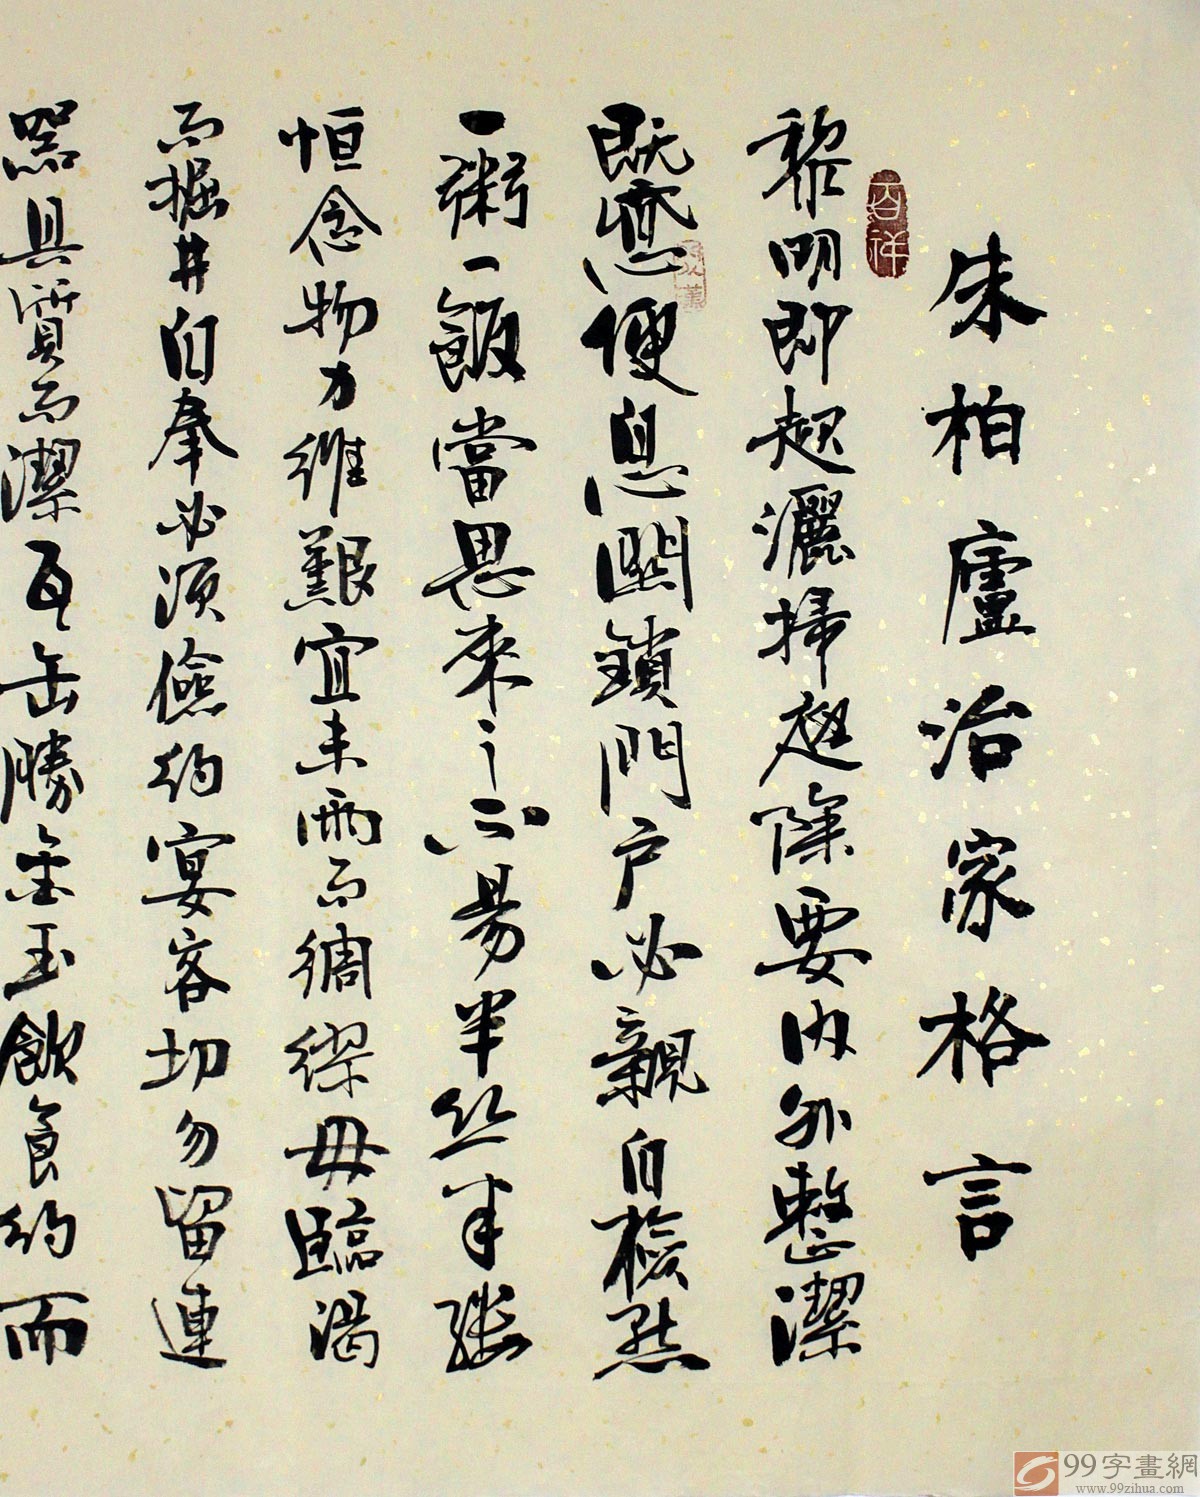 朱柏廬治家格言
黎明即起灑掃庭除要內外整潔
既便息關鎖門戶必親自檢點
一粥一飯當思來之不易半絲半縷
恒念物力維艱宜未雨而綢繆毋臨渴
而掘井自奉必須儉約宴客切勿留連
器具質而潔瓦缶勝金玉飲食約而
99字畫網
www.99zihua.com